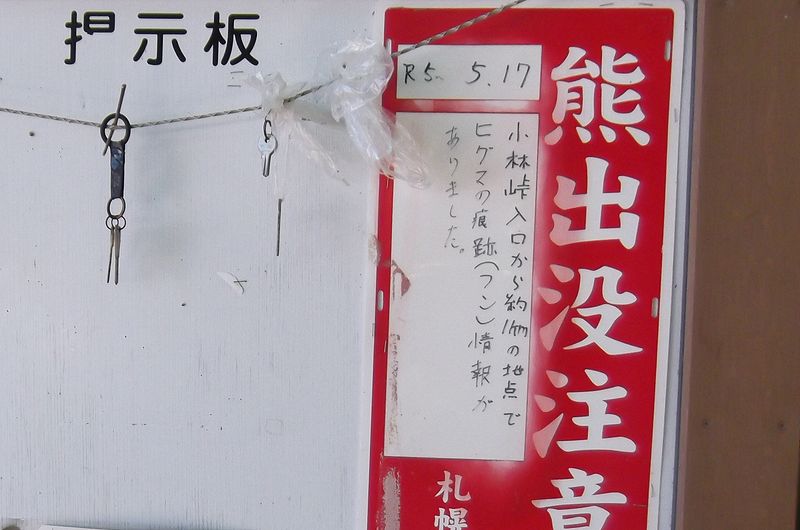 掲示板
熊出没注意
R5. 5.17
小林峠入口から約1kmの地点で
ヒグマの痕跡(フン)情報が
ありました。
札幌